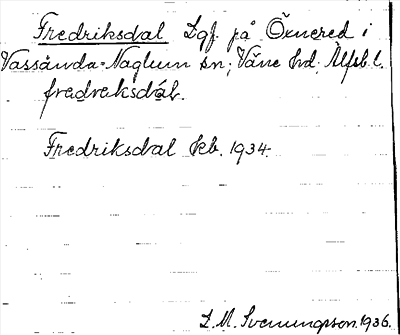 Fredriksdal Lgf. på Öxnered i
Vassända-Naglum sn; Väne hd, Älfsb. l.
fredreksdál.
Fredriksdal kb. 1934.
L. M. Svenungsson. 1936.